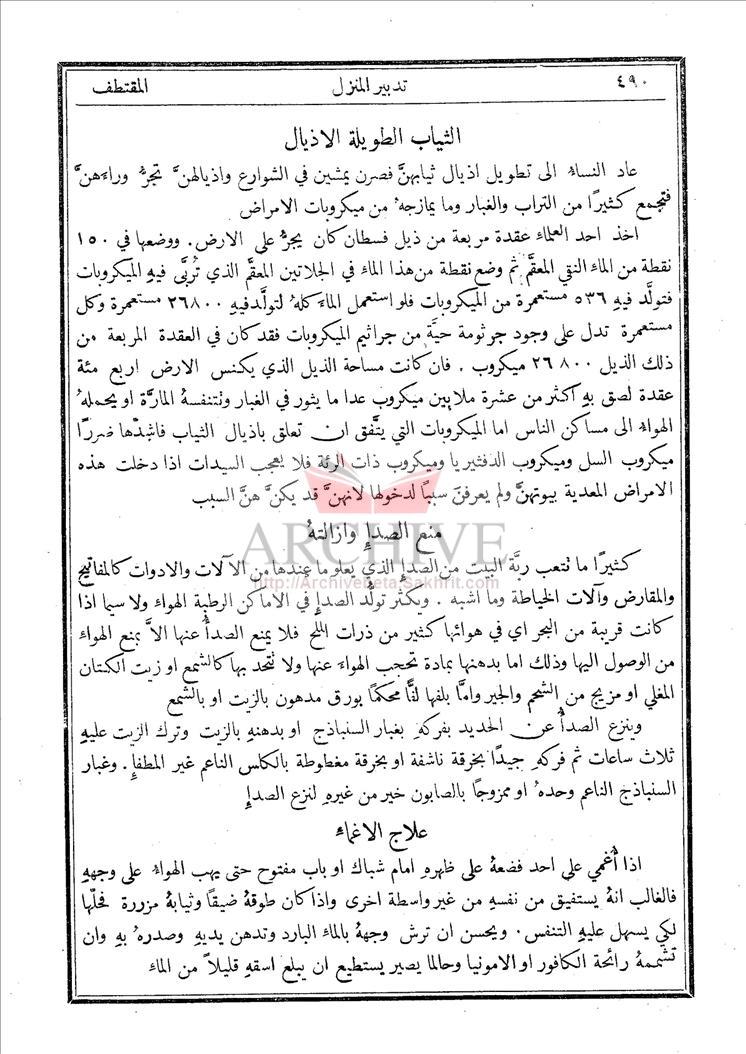 ٤٩٠ تدبير المنزل المقتطف
الثياب الطويلة الاذيال
عاد النساءُ الى تطويل اذيال ثيابهنَّ فصرن يمشين في الشوارع واذيالهنَّ تجرُّ وراءَهنَّ
فتجمع كثيرًا من التراب والغبار وما يمازجهُ من ميكروبات الامراض
اخذ احد العلماء عقدة مربعة من ذيل فسطان كان يجرُّ على الارض. ووضعها في ١٥٠
نقطة من الماء النقي المعقَّم ثم وضع نقطة من هذا الماء في الجلاتين المعقَّم الذي تُربَّى فيهِ الميكروبات
فتولَّد فيهِ ٥٣٦ مستعمرة من الميكروبات فلو استعمل الماءَ كلهُ لتولَّد فيهِ ٢٦٨٠٠ مستعمرة وكل
مستعمرة تدل على وجود جرثومة حيَّة من جراثيم الميكروبات فقد كان في العقدة المربعة من
ذلك الذيل ٢٦٨٠٠ ميكروب . فان كانت مساحة الذيل الذي يكنس الارض اربع مئة
عقدة لصق بهِ اكثر من عشرة ملايين ميكروب عدا ما يثور في الغبار وتتنفسهُ المارَّة او يحملهُ
الهواءُ الى مساكن الناس اما الميكروبات التي يتَّفق ان تعلق باذيال الثياب فاشدّها ضررًا
ميكروب السل وميكروب الدفثيريا وميكروب ذات الرئة فلا يعجب السيدات اذا دخلت هذه
الامراض المعدية بيوتهنَّ ولم يعرفنَ سببًا لدخولها لانهنَّ قد يكنَّ هنَّ السبب
منع الصدإِ وازالتهُ
ARCHIVE
كثيرًا ما تتعب ربَّة البيت من الصدإِ الذي يعلو ما عندها من الآلات والادوات كالمفاتيح
http://Archivebeta.Sakhrit.com
والمقارض وآلات الخياطة وما اشبه . ويكثر تولُّد الصدإِ في الاماكن الرطبة الهواء ولا سيما اذا
كانت قريبة من البحر اي في هوائها كثير من ذرات الملح فلا يمنع الصدأُ عنها الاَّ بمنع الهواء
من الوصول اليها وذلك اما بدهنها بمادة تحجب الهواءَ عنها ولا تتحد بها كالشمع او زيت الكتان
المغلي او مزيج من الشحم والجير وامَّا بلفها لفًّا محكمًا بورق مدهون بالزيت او بالشمع
وينزع الصدأُ عن الحديد بفركهِ بغبار السنباذج او بدهنهِ بالزيت وترك الزيت عليهِ
ثلاث ساعات ثم فركهِ جيدًا بخرقة ناشفة او بخرقة مغطوطة بالكلس الناعم غير المطفإِ . وغبار
السنباذج الناعم وحدهُ او ممزوجًا بالصابون خير من غيرهِ لنزع الصدإِ
علاج الاغماء
اذا أُغمي على احد فضعهُ على ظهرهِ امام شباك او باب مفتوح حتى يهب الهواءُ على وجههِ
فالغالب انهُ يستفيق من نفسهِ من غير واسطة اخرى واذا كان طوقهُ ضيقًا وثيابهُ مزررة فحلّها
لكي يسهل عليهِ التنفس . ويحسن ان ترش وجههُ بالماء البارد وتدهن يديهِ وصدرهُ بهِ وان
تشممهُ رائحة الكافور او الامونيا وحالما يصير يستطيع ان يبلع اسقهِ قليلاً من الماء